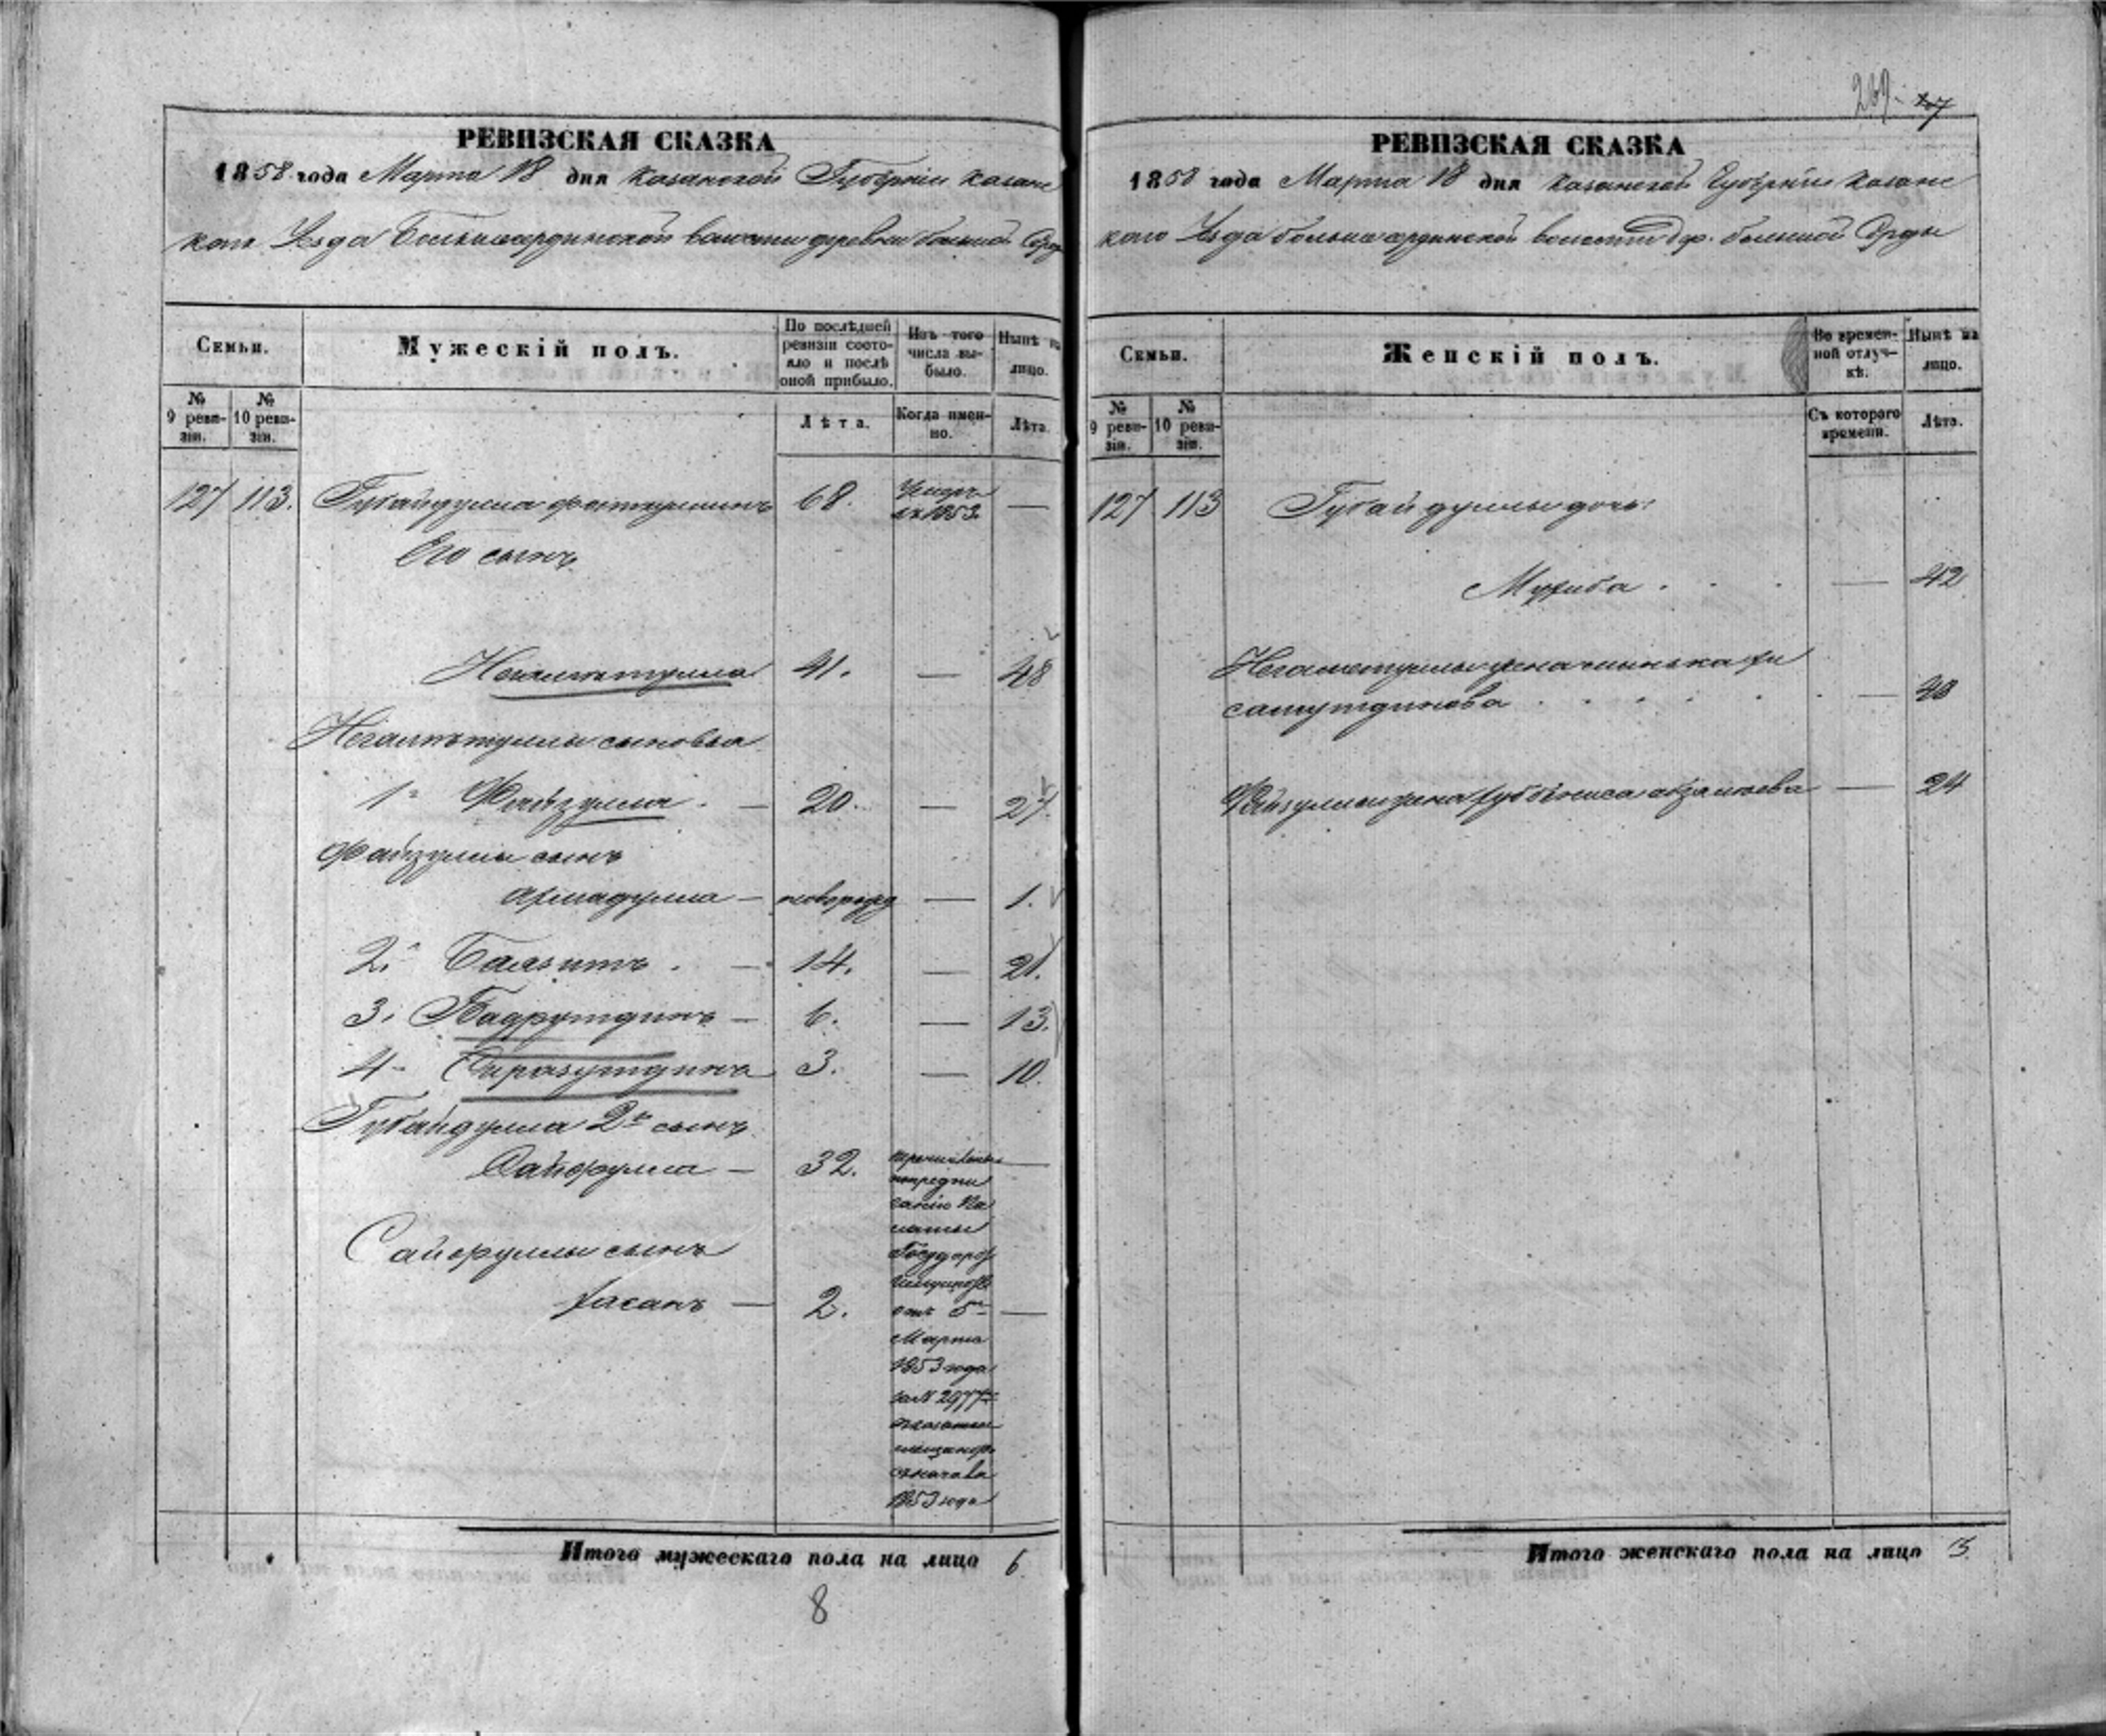 269. 87
РЕВИЗСКАЯ СКАЗКА
1858 года Марта 18 дня Казанской Губерніи Казанс
каго Уезда Большеардинской волости деревни большой
Семьи.
Мужескій полъ.
По послѣдней ревизіи состо-
яло и послѣ
оной прибыло.
Изъ того
числа вы-
было.
Нынѣ на
лицо.
№
9 реви-
зіи.
№
10 реви-
зіи.
Лѣта.
Когда имен-
но.
Лѣта.
127 113. Губайдулла 68. —
Его сынъ
Негаметулла 41. — 48
Негаметуллы сыновья
1й Файзулла. — 20. — 27.
Файзуллы сынъ
Ахмадулла — новорожд — 1.
2й Баязитъ. — 14. — 21.
3. Бадрутдинъ — 6. — 13.
4 - Сиразутдинъ 3. — 10.
Губайдулла 2й сынъ
Сайфулла — 32. —
по предпи
санію Па
латы
Государс
Имуществ
отъ 5го
Марта
1853 года
за № 2977
Сайфуллы сынъ
Хасанъ — 2. —
сначала
1853 года
Итого мужескаго пола на лицо 6.
8
РЕВИЗСКАЯ СКАЗКА
1858 года Марта 18 дня Казанской Губерніи Казанс
каго Уезда большеардинской волости дер. большой
Семьи.
Женскій полъ.
Во времен-
ной отлуч-
кѣ.
Нынѣ на
лицо.
№
9 реви-
зіи.
№
10 реви-
зіи.
Съ котораго
времени.
Лѣта.
127 113 Губайдуллы дочь:
— 42
Негаметуллы жена
— 48
Файзуллы жена — 24
Итого женскаго пола на лицо 3.